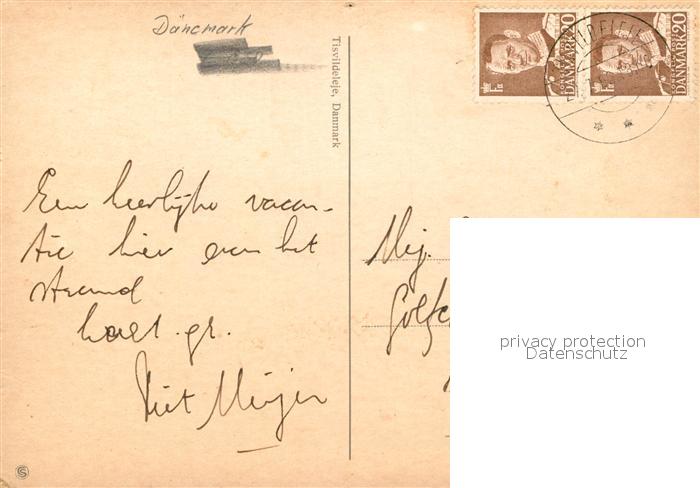 Dänemark
Tisvildeleje, Danmark
20
DANMARK
20
DANMARK
Een heerlijke vacan-
tie hier aan het
strand
hart. gr.
Piet Meijer
Mej.
privacy protection
Datenschutz
S